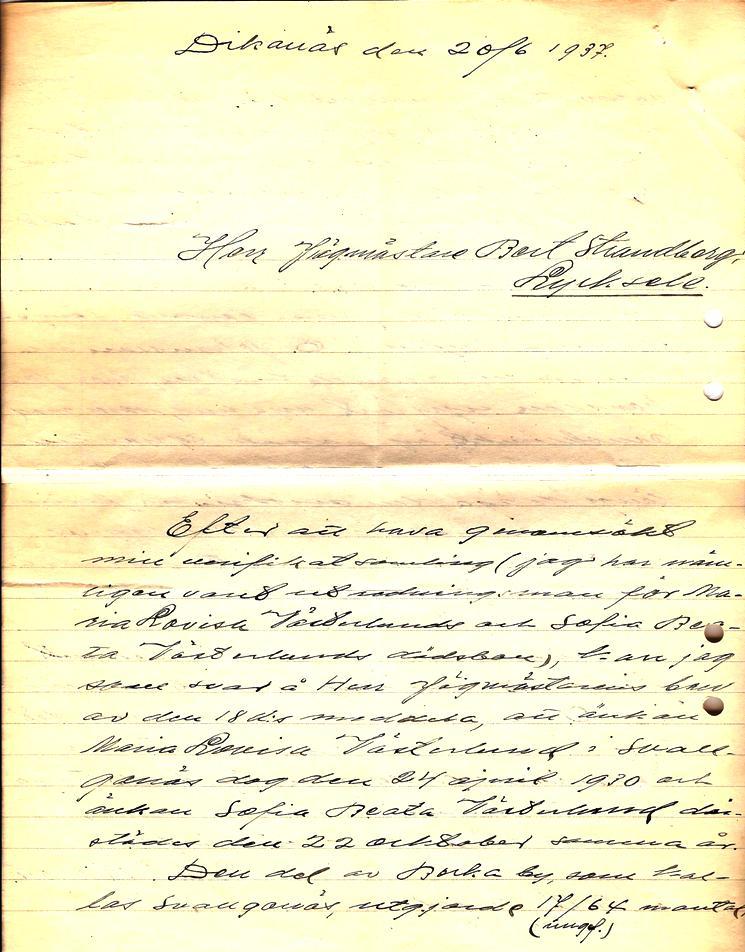 Dikanäs den 20/6 1937.
Herr Jägmästare Bert Strandberg,
Lycksele.
Efter att hava genomsökt
min verifikatsamling (jag har näm-
ligen varit utredningsman för Ma-
ria Lovisa Västerlunds och Sofia Bea-
ta Västerlunds dödsbon), kan jag
som svar å Herr Jägmästarens brev
av den 18 d:s meddela, att änkan
Maria Lovisa Västerlund i Svan-
gonäs dog den 24 april 1930 och
änkan Sofia Beata Västerlund där-
städes den 22 oktober samma år.
Den del av Borka by, som kal-
las Svangonäs, utgjorde 17/64 mantal
(ungf.)